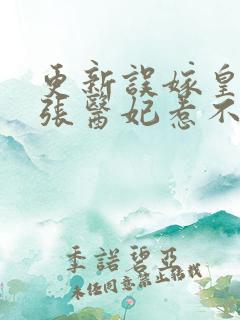 更新誤嫁皇
張醫妃惹不
季諾碧亞
未經同意禁止搭找